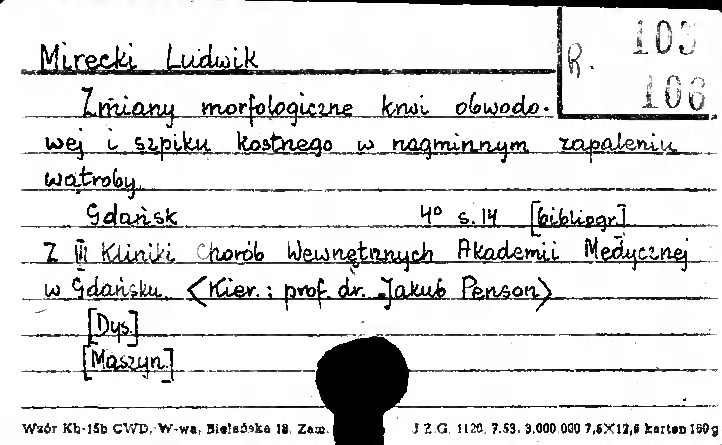 Mirecki Ludwik
R. 103
106
Zmiany morfologiczne krwi obwodo-
wej i szpiku kostnego w nagminnym zapaleniu
wątroby.
Gdańsk 4° s. 14 [bibliogr.]
Z III Kliniki Chorób Wewnętrznych Akademii Medycznej
w Gdańsku. <Kier.: prof. dr. Jakub Penson>
[Dys.]
[Maszyn.]
Wzór Kb-15b CWD, W-wa, Bielańska 18. Zam. J Z.G. 1120. 7.53. 3.000.000 7,5×12,5 karton 160 g